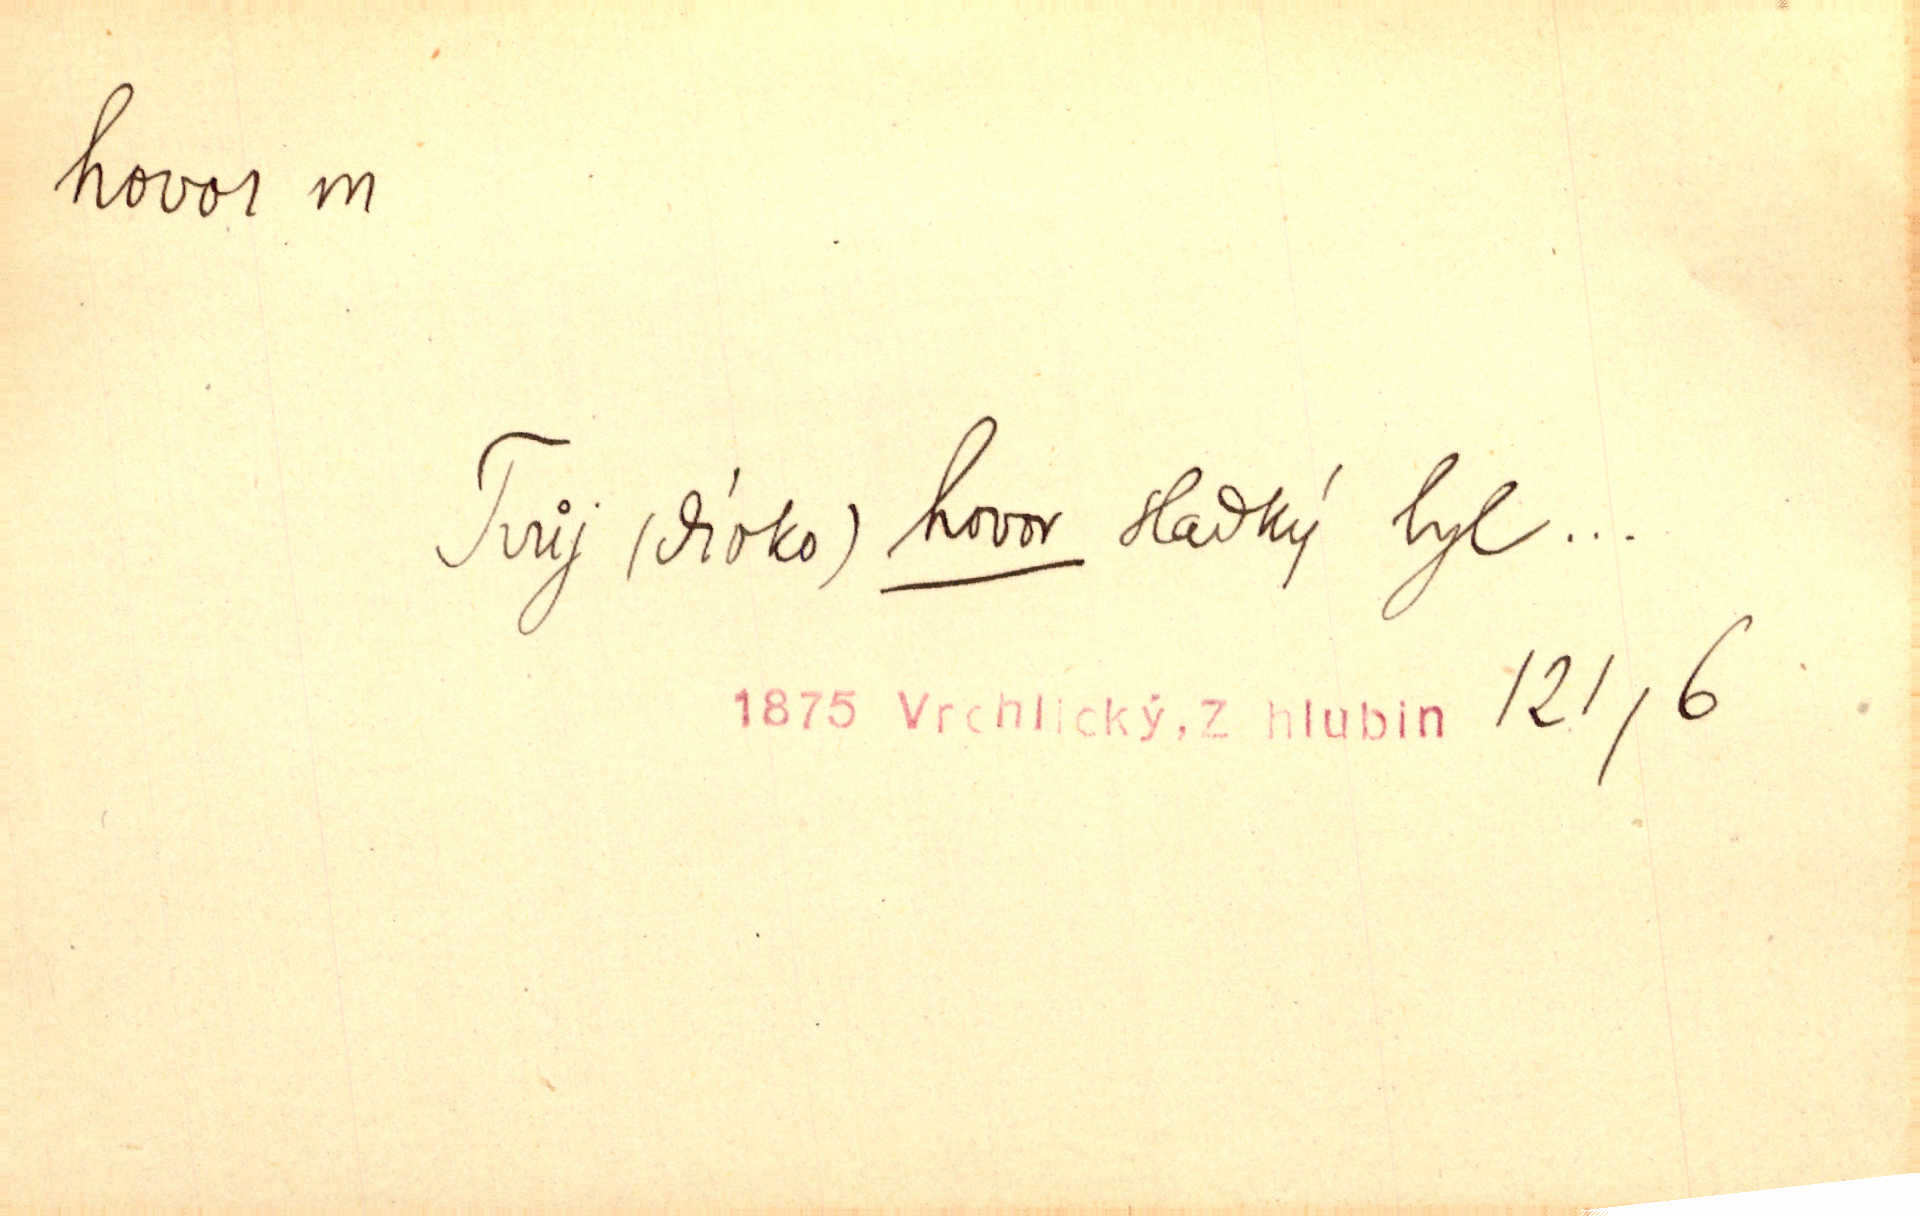 hovor m
Tvůj (dívko) hovor sladký byl...
1875 Vrchlický, Z hlubin 121,6